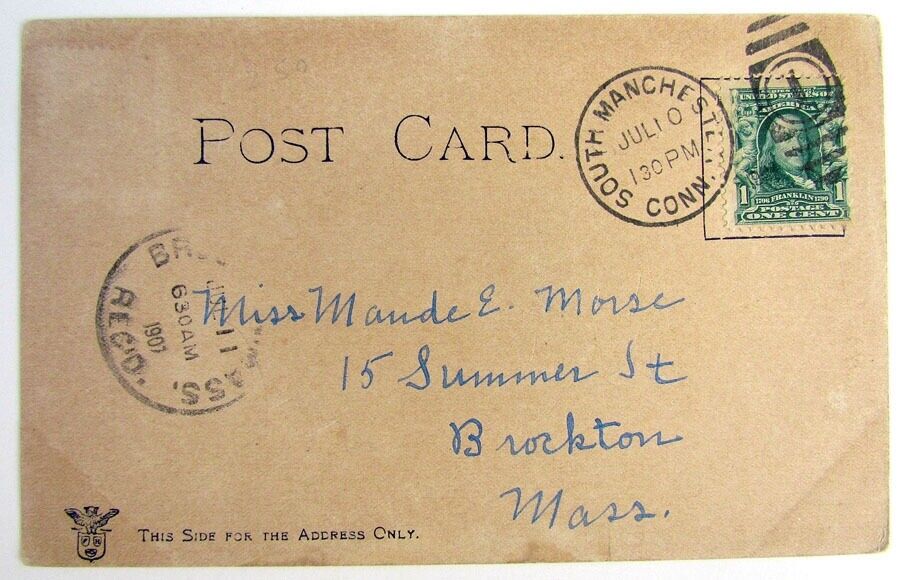 POST CARD.
SOUTH MANCHESTER
JUL 10
1 30 PM
CONN.
UNITED STATES OF
AMERICA
1 1
1706 FRANKLIN 1790
POSTAGE
ONE CENT
11
6 30 AM
1907
MASS.
REC'D.
Miss Maude E. Morse
15 Summer St
Brockton
Mass.
THIS SIDE FOR THE ADDRESS ONLY.